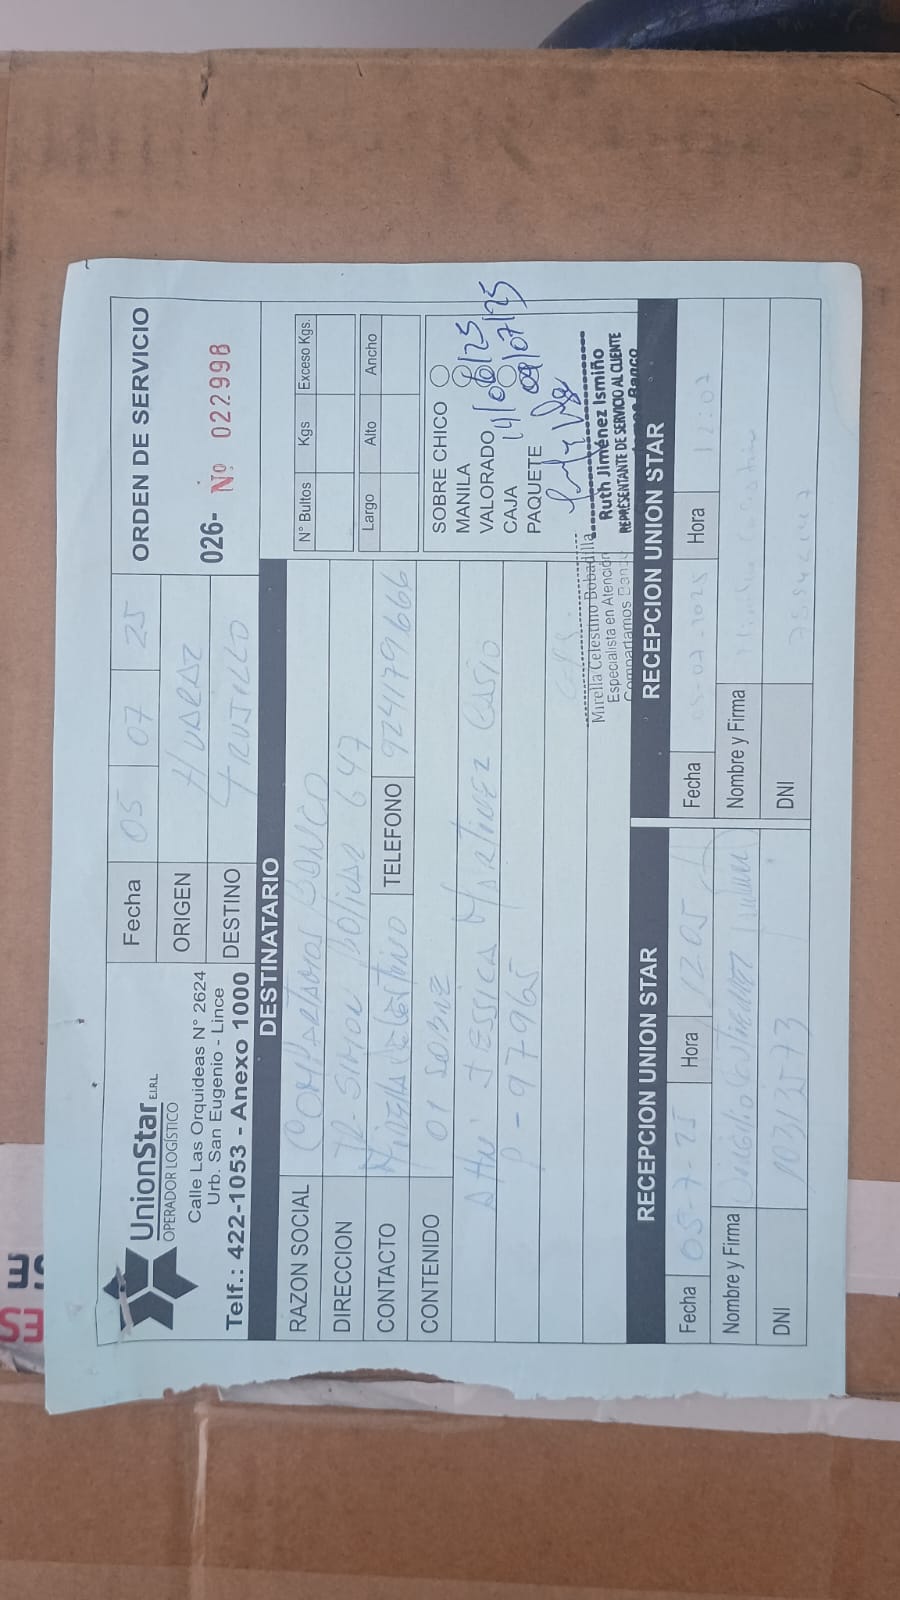 UnionStar E.I.R.L
OPERADOR LOGÍSTICO
Calle Las Orquideas N° 2624
Urb. San Eugenio - Lince
Telf.: 422-1053 - Anexo 1000
Fecha 05 07 25
ORIGEN HUARAZ
DESTINO TRUJILLO
ORDEN DE SERVICIO
026- Nº 022998
DESTINATARIO
RAZON SOCIAL COMPARTAMOS BANCO
DIRECCION JR- SIMON BOLIVAR 647
CONTACTO MIRELLA CELESTINO TELEFONO 924179666
CONTENIDO 01 SOBRE
ATN: JESSICA MARTINEZ
P-97965
N° Bultos Kgs Exceso Kgs.
Largo Alto Ancho
SOBRE CHICO
MANILA
VALORADO
CAJA
PAQUETE
09/07/25
Ruth Jiménez Ismiño
REPRESENTANTE DE SERVICIO AL CLIENTE
Mirella Celestino Bobadilla
Especialista en Atención
Compartamos Banco
RECEPCION UNION STAR
Fecha 05-7-25 Hora 12.05
Nombre y Firma
DNI
RECEPCION UNION STAR
Fecha 05-07-2025 Hora 12:07
Nombre y Firma
DNI